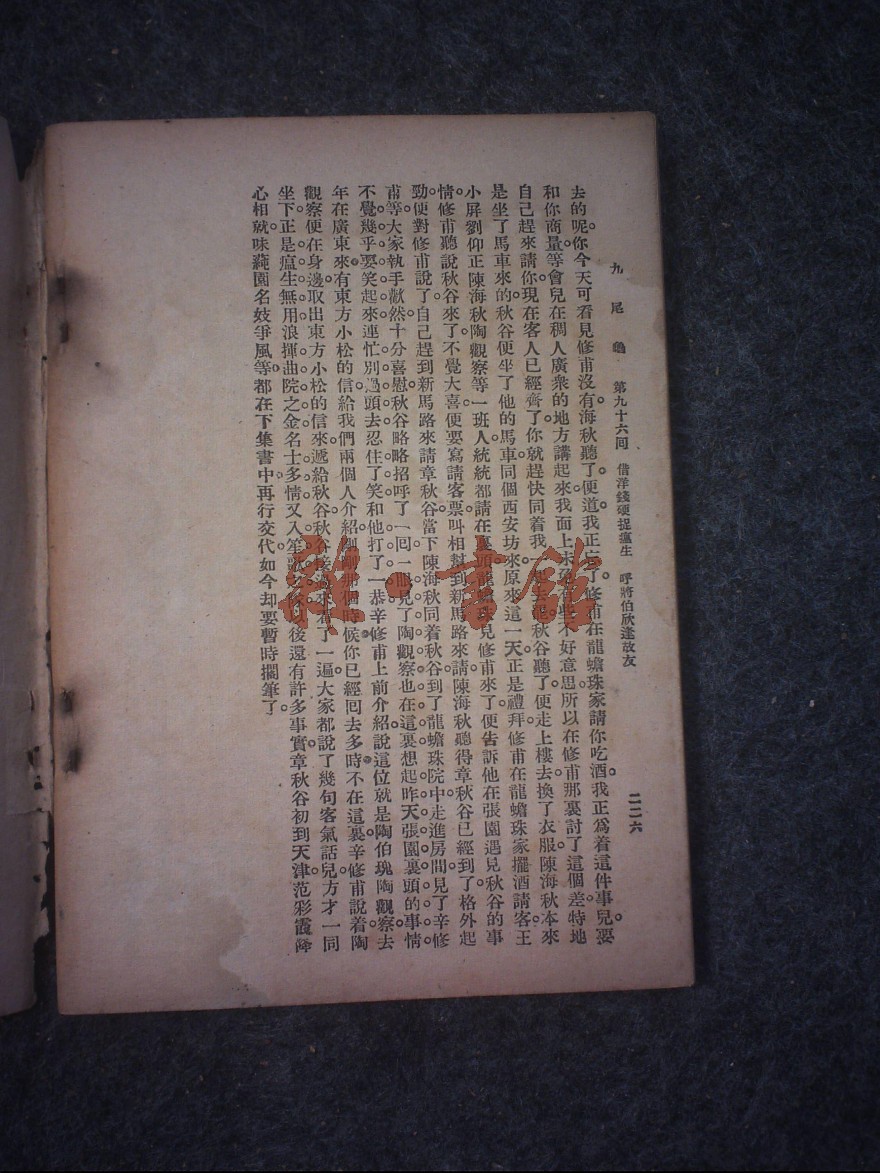 九尾龜 第九十六回 借洋錢硬捉瘟生 呼將伯欣逢故友 二二六
去的呢。你今天可看見修甫沒有。海秋聽了。便道我正忘了。修甫在龍蟾珠家請你吃酒。我正爲着這件事兒。要
和你商量。等會兒在稠人廣衆的地方講起來我面上未免有些不好意思所以在修甫那裏討了這個差。特地
自己趕來請你。現在客人已經齊了。你就趕快同着我一起去罷。秋谷聽了。便走上樓去。換了衣服陳海秋本來
是坐了馬車來的秋谷便坐了他的馬車同到西安坊來原來這一天正是禮拜修甫在龍蟾珠家擺酒請客王
小屏劉仰正陳海秋陶觀察等一班人。統統都請在裏頭。龍蟾珠見修甫來了。便告訴他在張園遇見秋谷的事
情。修甫聽說秋谷來了。不覺大喜。便要寫請客票叫相幫到新馬路來請陳海秋聽得章秋谷已經到了。格外起
勁。便對修甫說了。自己趕到新馬路來請章秋谷。當下陳海秋同着秋谷。到了龍蟾珠院中。走進房間。見了辛修
甫等。大家執手歡然。十分喜慰。秋谷略略招呼了一回。一眼見了陶觀察也在這裏想起昨天張園裏頭的事情。
不覺幾乎要笑起來。連忙別過頭去。忍住了笑和他打了一恭辛修甫上前介紹說這位就是陶伯瑰陶觀察。去
年在廣東來。有東方小松的信給我們兩個人介紹。剛剛那個時候。你已經回去多時不在這裏。辛修甫說着陶
觀察便在身邊取出東方小松的信來。遞給秋谷。秋谷接過來看了一遍。大家都說了幾句客氣話兒。方才一同
坐下。正是瘟生無用。浪揮曲院之金。名士多情。又入笙歌之隊。以後還有許多事實。章秋谷初到天津。范彩霞降
心相就。味蒓園名妓爭風等。都在下集書中再行交代。如今却要暫時擱筆了
雜·書館